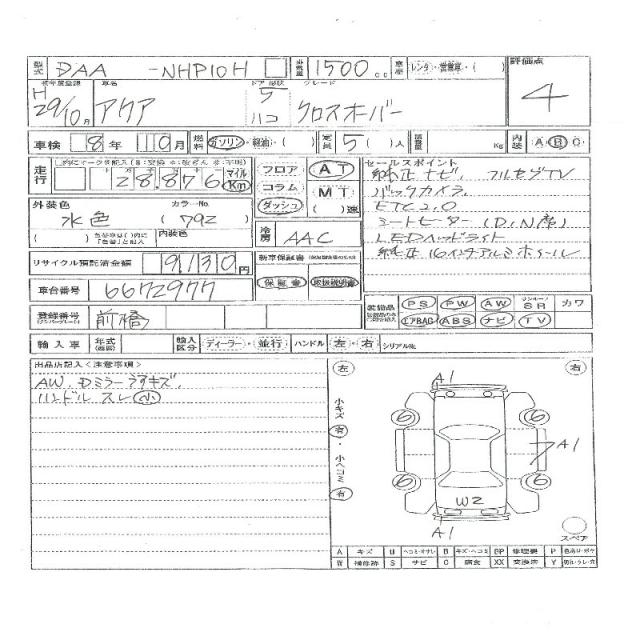 型式 DAA -NHP10H 排気量 1500 cc 車歴 レンタ・営業車・( ) 評価点
初年度登録 車名 ドア 形状 グレード
H 29/10月 アクア 5 ハコ クロスオーバー 4
車検 8年 10月 燃料 ガソリン・軽油・( ) 定員 5( )人 積載量 Kg 内装 A B C
走行 28,876 マイル Km フロア コラム ダッシュ AT MT ( )速
セールスポイント
純正ナビ. フルセグTV
バックカメラ.
ETC2.0
シートヒーター (D,N席)
LEDヘッドライト
純正 16インチアルミホイール
外装色 カラーNo.
水色 (792)
( ) 内装色 冷房 AAC
リサイクル預託済金額 9,130円 新車保証書
車台番号 6672977 保証書 取扱説明書
装備品 PS PW AW サンルーフ SR カワ
エアBAG ABS ナビ TV
登録番号 前橋
輸入車 年式 輸入区分 ディーラー・並行 ハンドル 左・右 シリアルNo.
出品店記入<注意事項>
AW. Dミラー アサキズ.
ハンドル スレ 小
左 右
小キズ 有
小ヘコミ 有
A1
6 6
A1
6 6
W2
A1
スペア
A キズ U ヘコミ B キズ・ヘコミ BP 修理要 P
W 補修跡 S サビ C 腐食 XX 交換済 Y